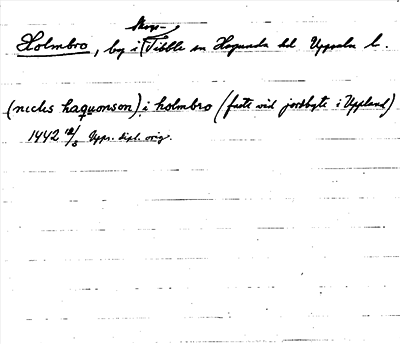 Skog-
Holmbro, by i Tibble sn Hagunda hd Uppsala l.
(niclis haquonson) i holmbro (faste vid jordbyte i Uppland)
1442 12/3 Upps. dipl. orig.